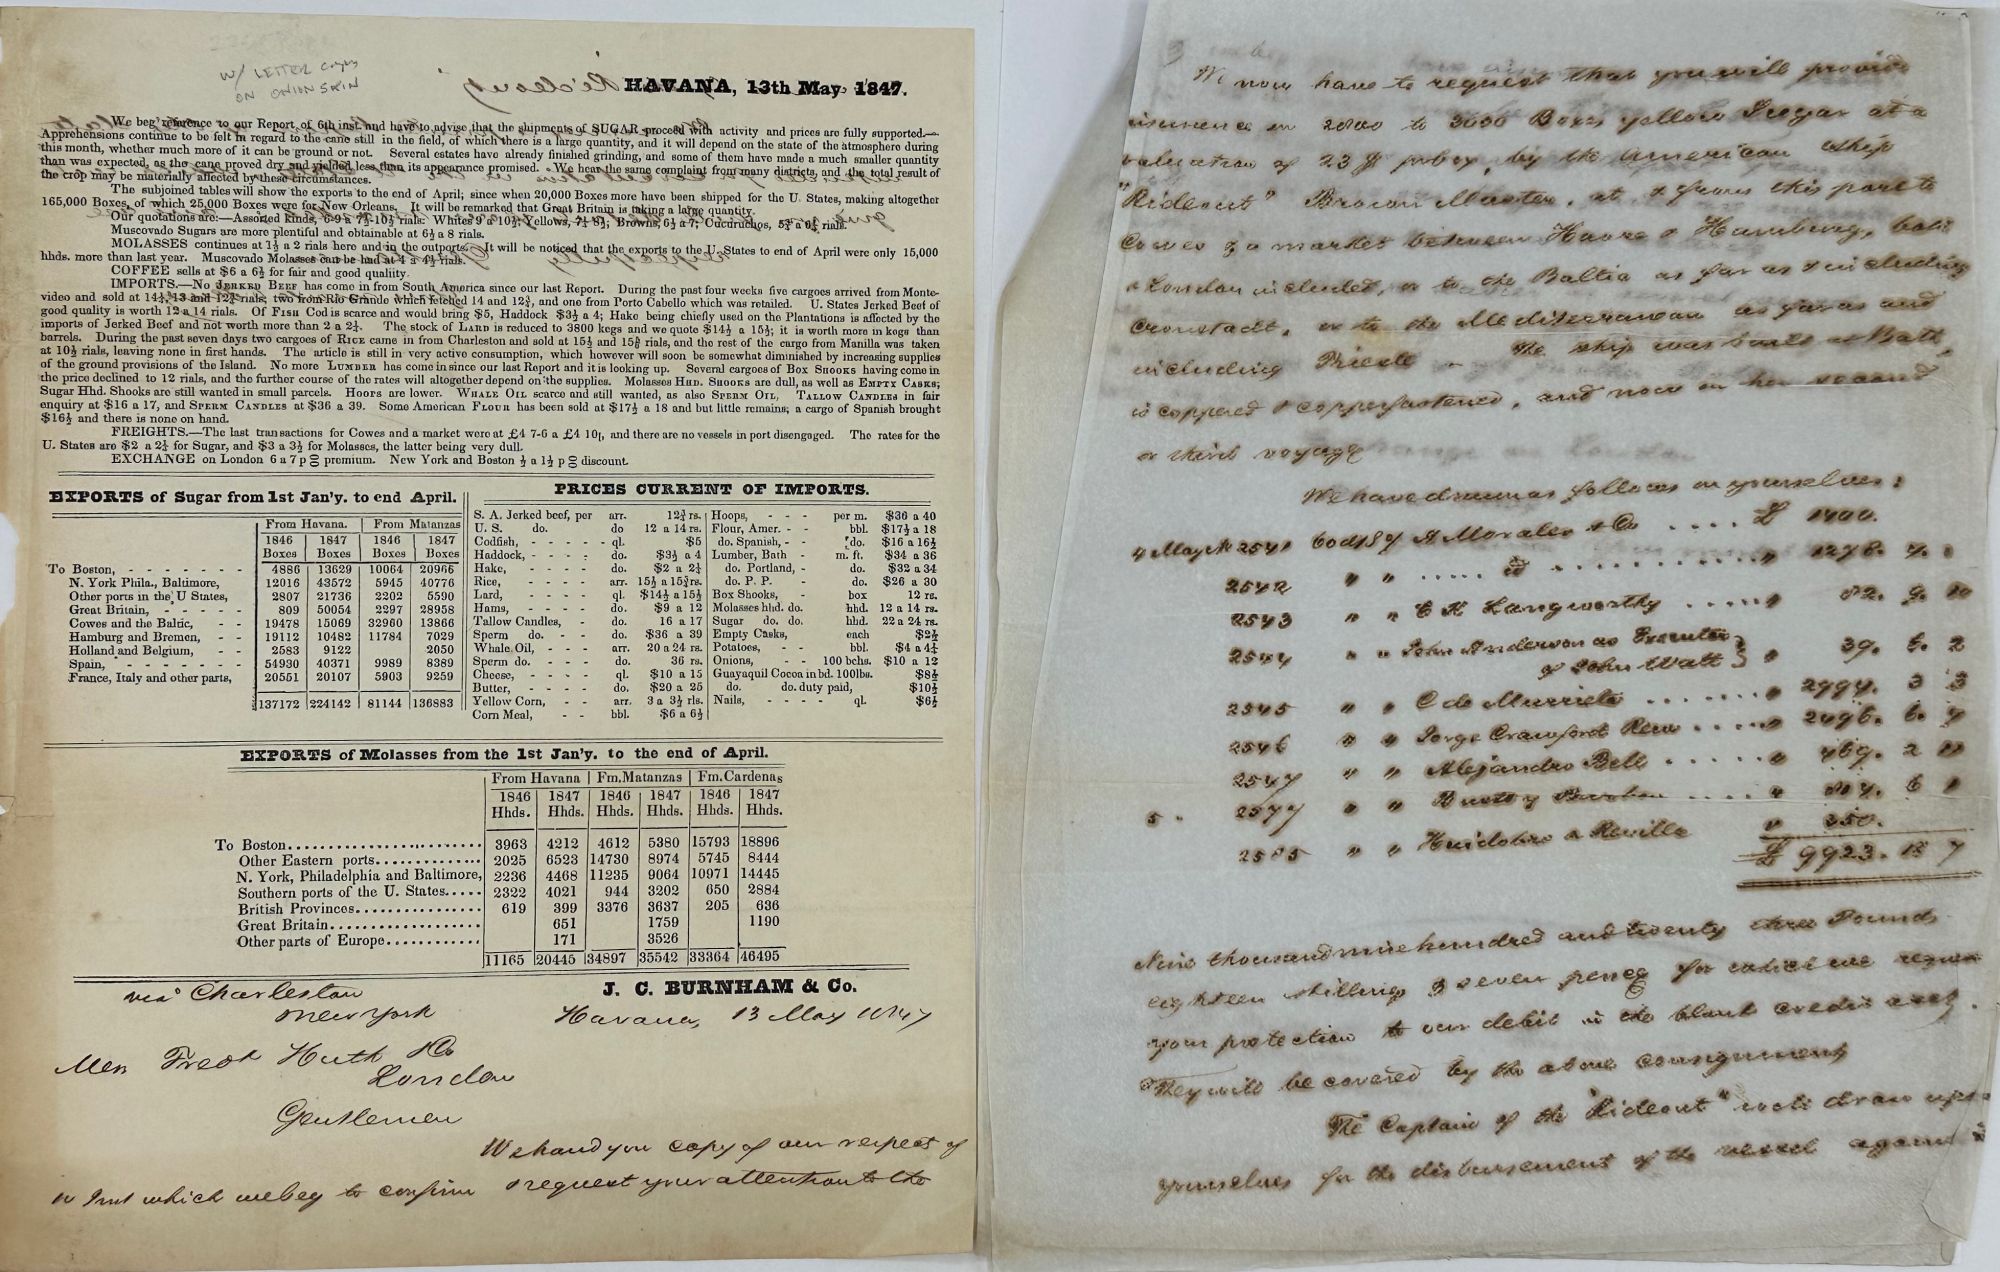 W/ LETTER copy
ON ONION SKIN
HAVANA, 13th May 1847.
We beg reference to our Report of 6th inst. and have to advise that the shipments of SUGAR proceed with activity and prices are fully supported.—
Apprehensions continue to be felt in regard to the cane still in the field, of which there is a large quantity, and it will depend on the state of the atmosphere during
this month, whether much more of it can be ground or not. Several estates have already finished grinding, and some of them have made a much smaller quantity
than was expected, as the cane proved dry and yielded less than its appearance promised. We hear the same complaint from many districts, and the total result of
the crop may be materially affected by these circumstances.
The subjoined tables will show the exports to the end of April; since when 20,000 Boxes more have been shipped for the U. States, making altogether
165,000 Boxes, of which 25,000 Boxes were for New Orleans. It will be remarked that Great Britain is taking a large quantity.
Our quotations are:—Assorted kinds, Whites 9 a 10½; Yellows, Browns, 6½ a 7; Cucuruchos, rials.
Muscovado Sugars are more plentiful and obtainable at 6½ a 8 rials.
MOLASSES continues at 1½ a 2 rials here and in the outports. It will be noticed that the exports to the U. States to end of April were only 15,000
hhds. more than last year. Muscovado Molasses can be had at 4 a 4½ rials.
COFFEE sells at $6 a 6½ for fair and good quality.
IMPORTS.—No JERKED BEEF has come in from South America since our last Report. During the past four weeks five cargoes arrived from Monte-
video and sold at 14½, 13 and 12¾ rials, two from Rio Grande which fetched 14 and 12¾, and one from Porto Cabello which was retailed. U. States Jerked Beef of
good quality is worth 12 a 14 rials. Of FISH Cod is scarce and would bring $5, Haddock $3½ a 4; Hake being chiefly used on the Plantations is affected by the
imports of Jerked Beef and not worth more than 2 a 2¼. The stock of LARD is reduced to 3800 kegs and we quote $14½ a 15½; it is worth more in kegs than
barrels. During the past seven days two cargoes of RICE came in from Charleston and sold at 15½ and 15⅝ rials, and the rest of the cargo from Manilla was taken
at 10½ rials, leaving none in first hands. The article is still in very active consumption, which however will soon be somewhat diminished by increasing supplies
of the ground provisions of the Island. No more LUMBER has come in since our last Report and it is looking up. Several cargoes of BOX SHOOKS having come in
the price declined to 12 rials, and the further course of the rates will altogether depend on the supplies. MOLASSES HHD. SHOOKS are dull, as well as EMPTY CASKS;
Sugar Hhd. Shooks are still wanted in small parcels. HOOPS are lower. WHALE OIL scarce and still wanted, as also SPERM OIL, TALLOW CANDLES in fair
enquiry at $16 a 17, and SPERM CANDLES at $36 a 39. Some American FLOUR has been sold at $17½ a 18 and but little remains; a cargo of Spanish brought
$16½ and there is none on hand.
FREIGHTS.—The last transactions for Cowes and a market were at £4 7-6 a £4 10, and there are no vessels in port disengaged. The rates for the
U. States are $2 a 2¼ for Sugar, and $3 a 3½ for Molasses, the latter being very dull.
EXCHANGE on London 6 a 7 p premium. New York and Boston ½ a 1½ p discount.
EXPORTS of Sugar from 1st Jan'y. to end April.
From Havana. From Matanzas
1846 1847 1846 1847
Boxes Boxes Boxes Boxes
To Boston, - - - - - - - 4886 13629 10064 20966
N. York Phila., Baltimore, 12016 43572 5945 40776
Other ports in the U States, 2807 21736 2202 5590
Great Britain, - - - - 809 50054 2297 28958
Cowes and the Baltic, - - 19478 15069 32960 13866
Hamburg and Bremen, - - 19112 10482 11784 7029
Holland and Belgium, - - 2583 9122 2050
Spain, - - - - - - - 54930 40371 9989 8389
France, Italy and other parts, 20551 20107 5903 9259
137172 224142 81144 136883
PRICES CURRENT OF IMPORTS.
S. A. Jerked beef, per arr. 12¾ rs.
U. S. do. do 12 a 14 rs.
Codfish, - - - - - ql. $5
Haddock, - - - - do. $3½ a 4
Hake, - - - - do. $2 a 2¼
Rice, - - - - arr. 15½ a 15⅝ rs.
Lard, - - - - ql. $14½ a 15½
Hams, - - - - do. $9 a 12
Tallow Candles, - do. 16 a 17
Sperm do. - - do. $36 a 39
Whale Oil, - - arr. 20 a 24 rs.
Sperm do. - - - do. 36 rs.
Cheese, - - - - ql. $10 a 15
Butter, - - - - do. $20 a 25
Yellow Corn, - - arr. 3 a 3½ rls.
Corn Meal, - - bbl. $6 a 6½
Hoops, - - - per m. $36 a 40
Flour, Amer. - - bbl. $17½ a 18
do. Spanish, - - do. $16 a 16½
Lumber, Bath - m. ft. $34 a 36
do. Portland, - do. $32 a 34
do. P. P. - do. $26 a 30
Box Shooks, - box 12 rs.
Molasses hhd. do. hhd. 12 a 14 rs.
Sugar do. do. hhd. 22 a 24 rs.
Empty Casks, each $2½
Potatoes, - - bbl. $4 a 4¼
Onions, - - 100 bchs. $10 a 12
Guayaquil Cocoa in bd. 100lbs. $8½
do. do. duty paid, $10½
Nails, - - - - ql. $6½
EXPORTS of Molasses from the 1st Jan'y. to the end of April.
From Havana Fm. Matanzas Fm. Cardenas
1846 1847 1846 1847 1846 1847
Hhds. Hhds. Hhds. Hhds. Hhds. Hhds.
To Boston........................ 3963 4212 4612 5380 15793 18896
Other Eastern ports.............. 2025 6523 14730 8974 5745 8444
N. York, Philadelphia and Baltimore, 2236 4468 11235 9064 10971 14445
Southern ports of the U. States..... 2322 4021 944 3202 650 2884
British Provinces................ 619 399 3376 3637 205 636
Great Britain.................... 651 1759 1190
Other parts of Europe............ 171 3526
11165 20445 34897 35542 33364 46495
J. C. BURNHAM & Co.
via Charleston
New York
Havana, 13 May 1847
Mess Fredk Huth & Co
London
Gentlemen
We hand you copy of our respects of
10 Inst which we beg to confirm & request your attention to the
We now have to request that you will provide
insurance on 2800 to 3000 Boxes yellow Sugar at a
valuation of 23 $ p box, by the American ship
"Rideout" Master, at & from this port to
Cowes & a market between Havre & Hamburg, both
& London included, or to the Baltic as far as & including
Cronstadt, or to the Mediterranean as far as and
including Trieste – The ship was built at Bath,
is coppered & copperfastened, and now on her second
or third voyage
We have drawn as follows on yourselves:
4 May No 2541 60 d/s Morales & Co .... £ 1400.
2542 " " ..... id .......... " 1278. 7.
2543 " " C K Langworthy ..... " 82. 9. 10
2544 " " John Anderson as Executor
of John Watt " 39. 5. 2
2545 " " C de Murrieta ....... " 2994. 3 3
2546 " " Jorge Crawford ..... " 2496. 6. 4
2547 " " Alejandro Bell ...... " 469. 2 11
5 " 2577 " " .... " 6
2585 " " " 350.
£ 9923. 18 7
Nine thousand nine hundred and twenty three Pounds
eighteen shillings & seven pence for which we request
your protection to our debit in the blank credit acct.
They will be covered by the above consignment
The Captain of the "Rideout" will draw upon
yourselves for the disbursement of the vessel against